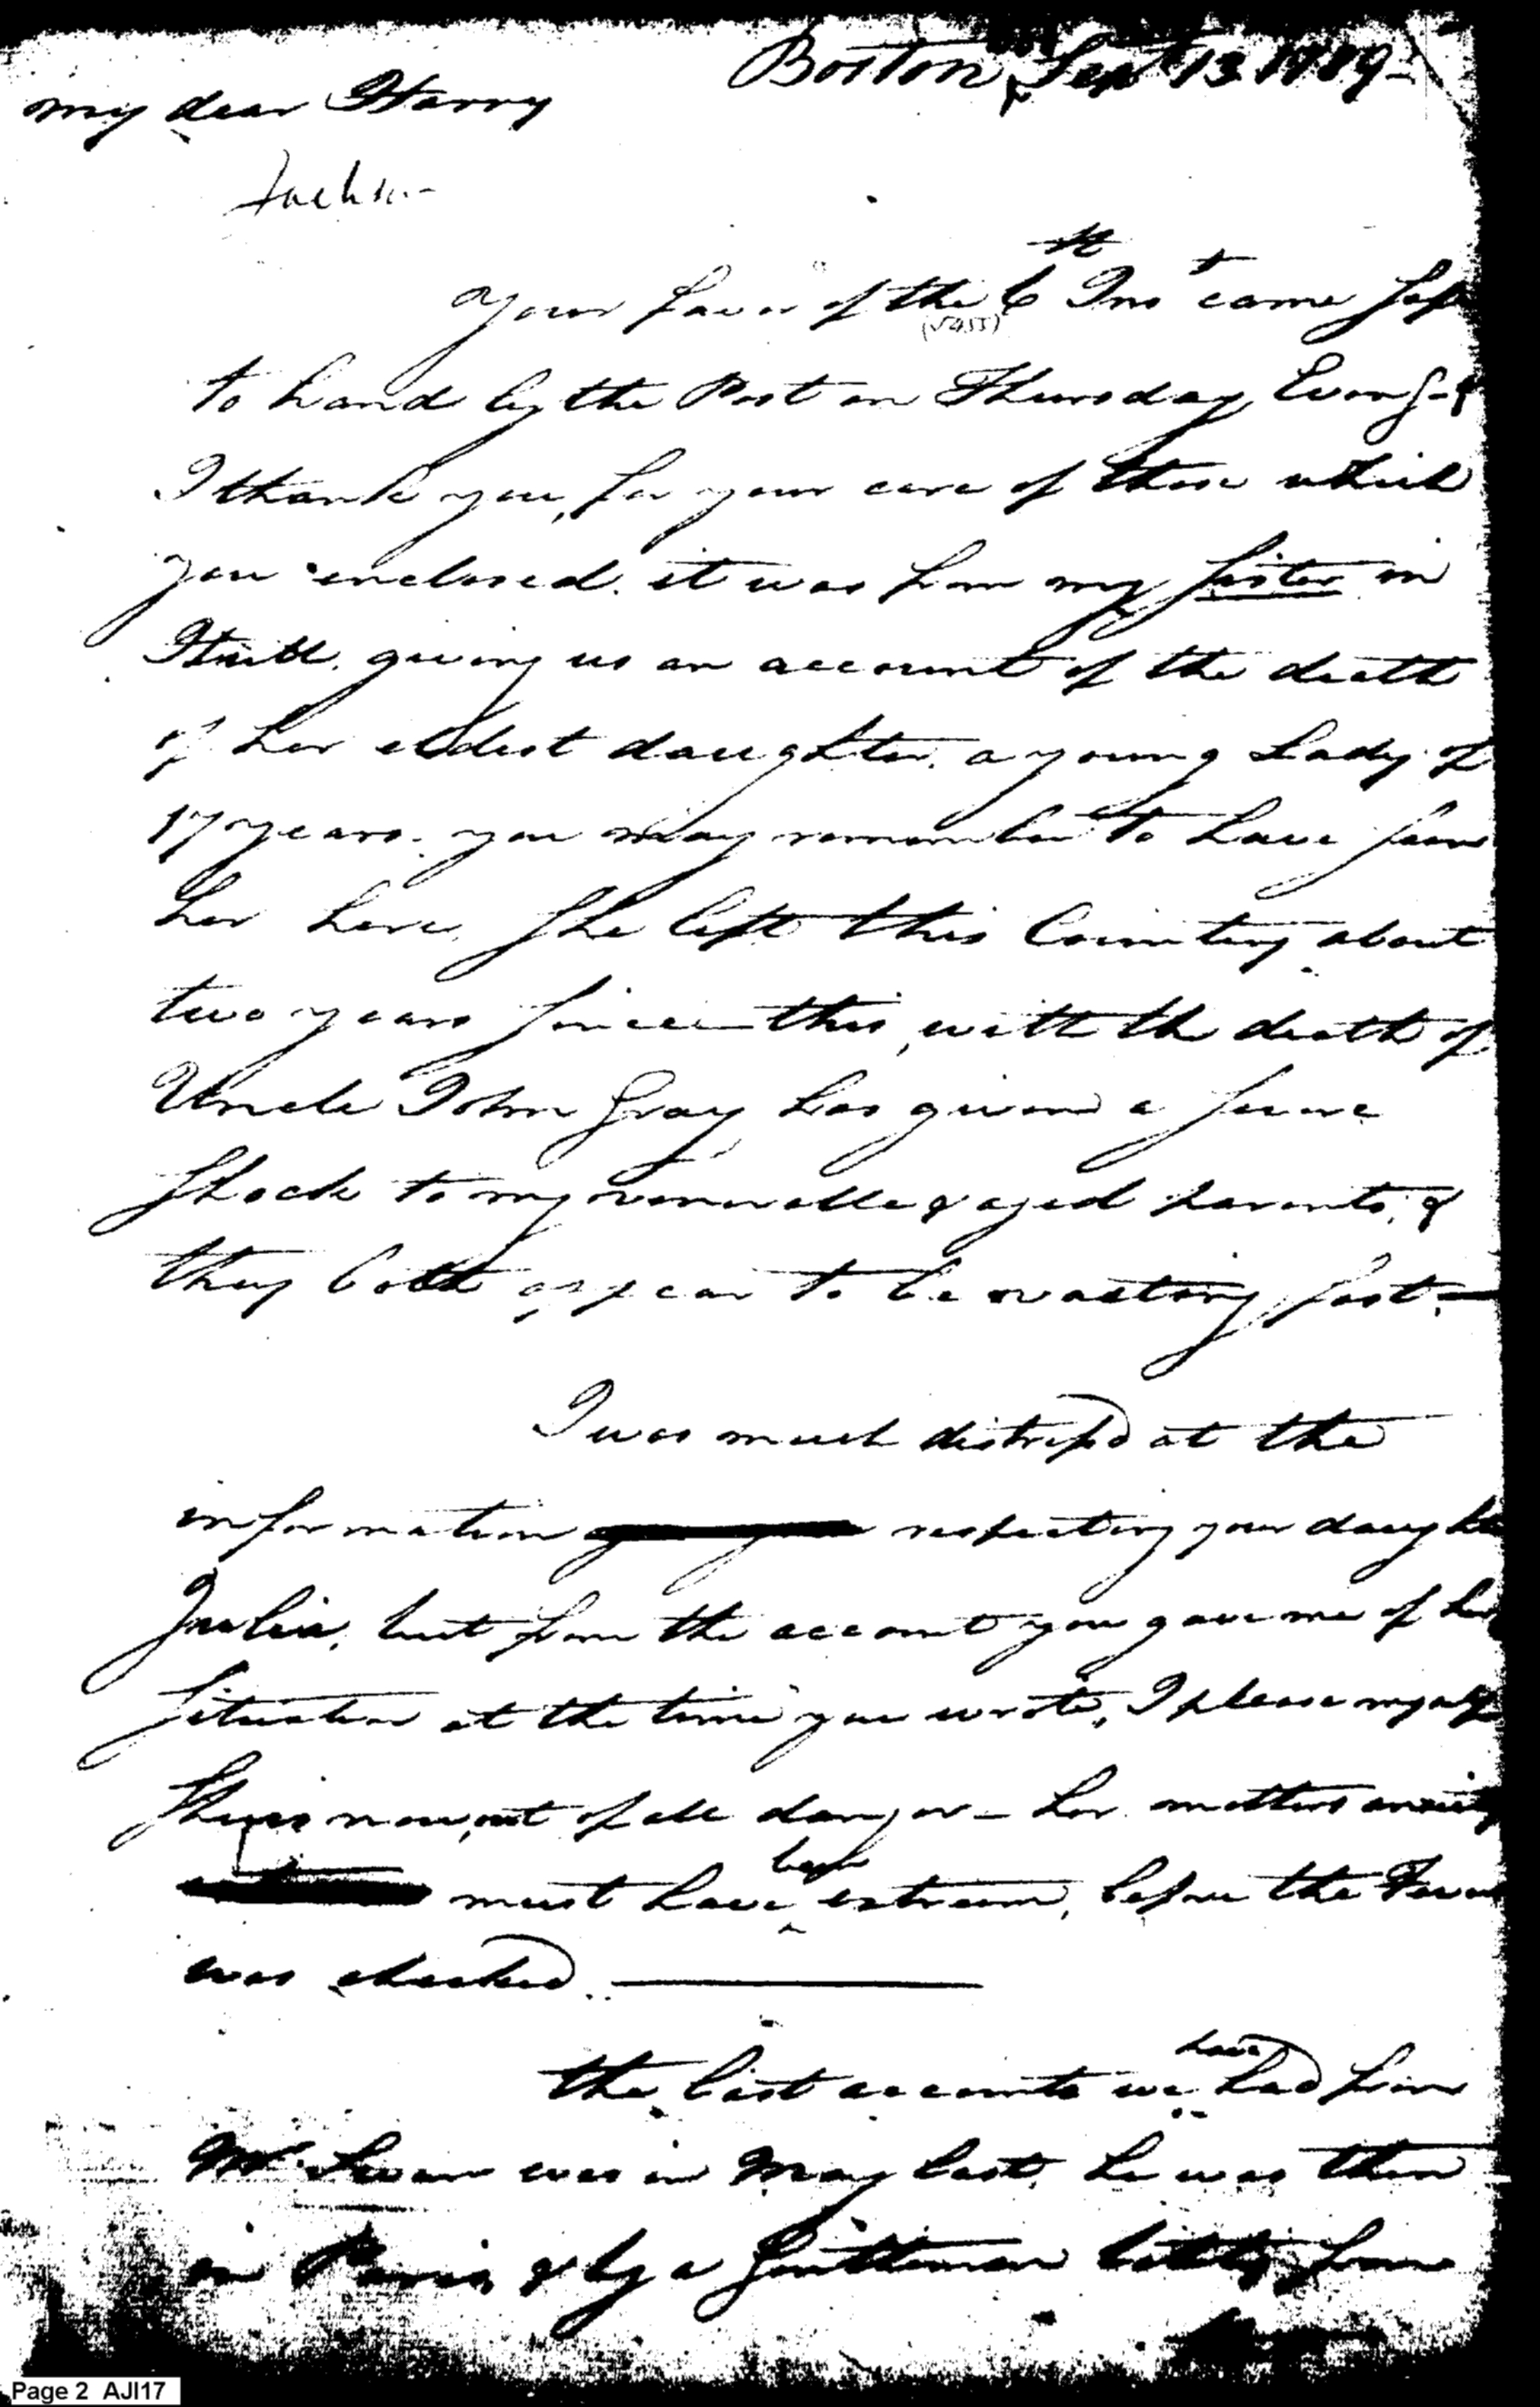 Boston Sept 13 1789-
my dear Harry
Jackson
your favor of the 6th Inst came safe
to hand by the Post on Thursday Eveng - &
I thank you, for your care of those which
you enclosed. it was from my sister in
giving us an account of the death
of her eldest daughter. a young Lady of
17 years. you may remember to have seen
her here, she left this Country about
two years since - this, with the death of
Uncle John Gray has given a severe
shock to my venerable & aged parents, &
they both appear to be wasting fast. -
I was much distress'd at the
information respecting your daughter
Julia, but from the account you gave me of her
situation at the time you wrote, I please myself
She is now, out of all danger - her mothers anxiety
must have been extream, before the Fever
was checked. ———
the last accounts we have had from
Mr. Swan was in May last, he was then
in Paris, & by a Gentleman lately from
Page 2 AJI17